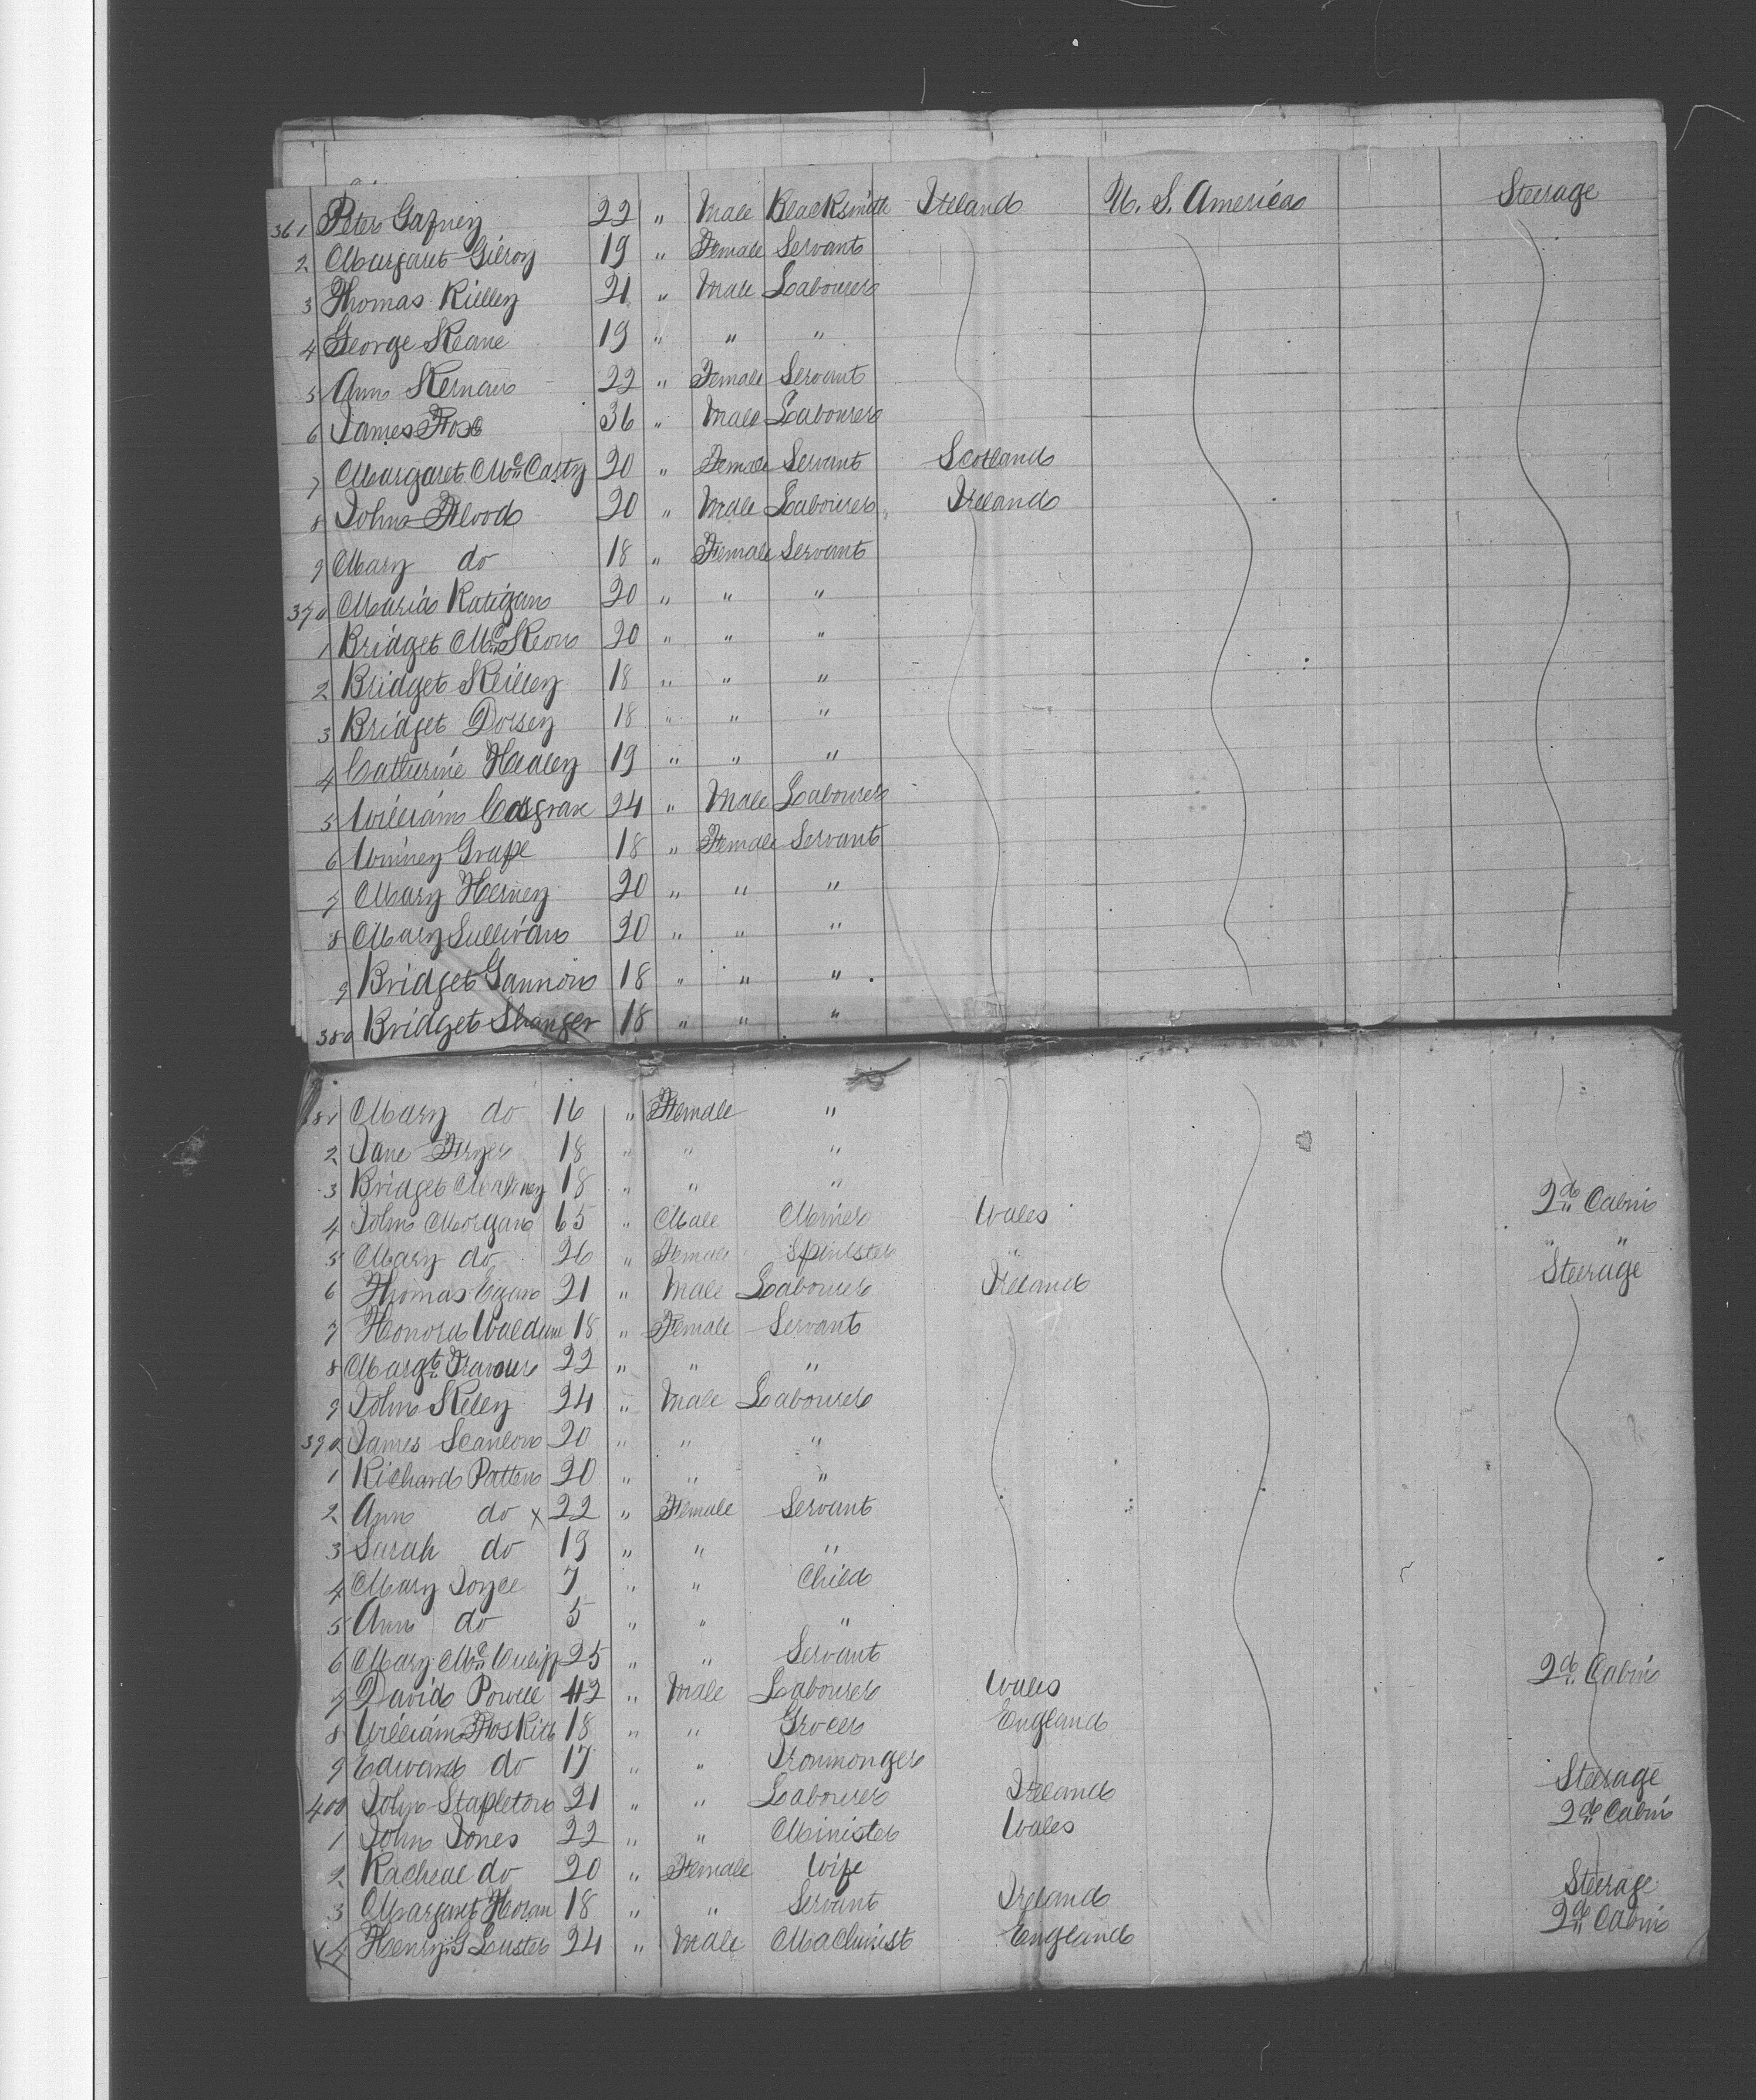 361 Peter Gafney 22 " Male Blacksmith Ireland U. S. America Steerage
2 Margaret Gilroy 19 " Female Servant
3 Thomas Rilley 21 " Male Labourer
4 George Keane 19 " " "
5 Ann Kernan 22 " Female Servant
6 James Fox 36 " Male Labourer
7 Margaret McCarty 20 " Female Servant Scotland
8 John Flood 20 " Male Labourer " Ireland
9 Mary do 18 " Female Servant
370 Maria Ratigan 20 " " "
1 Bridget McKeon 20 " " "
2 Bridget Reilley 18 " " "
3 Bridget Dorsey 18 " " "
4 Catherine Healey 19 " " "
5 William Cosgrave 24 " Male Labourer
6 Winney Grape 18 " Female Servant
7 Mary Herney 20 " " "
8 Mary Sullivan 20 " " "
9 Bridget Gannon 18 " " "
380 Bridget Shanger 18 " " "
381 Mary do 16 " Female "
2 Jane Fryer 18 " " "
3 Bridget 18 " " "
4 John Morgan 65 " Male Miner Wales 2d Cabin
5 Mary do 26 " Female Spinster " " "
6 Thomas Egan 21 " Male Labourer Ireland Steerage
7 Honora Waldron 18 " Female Servant
8 Margt Travers 22 " " "
9 John Kiley 24 " Male Labourer
390 James Scanlon 20 " " "
1 Richard Patten 20 " " "
2 Ann do x 22 " Female Servant
3 Sarah do 19 " " "
4 Mary Joyce 7 " " Child
5 Ann do 5 " " "
6 Mary 25 " " Servant
7 David Powell 42 " Male Labourer Wales 2d Cabin
8 William Foskitt 18 " " Grocer England
9 Edward do 17 " " Ironmonger
400 John Stapleton 21 " " Labourer Ireland Steerage
1 John Jones 22 " " Minister Wales 2d Cabin
2 Racheal do 20 " Female Wife
3 Margaret Horan 18 " " Servant Ireland Steerage
4 Henry G Luster 24 " Male Machinist England 2d Cabin